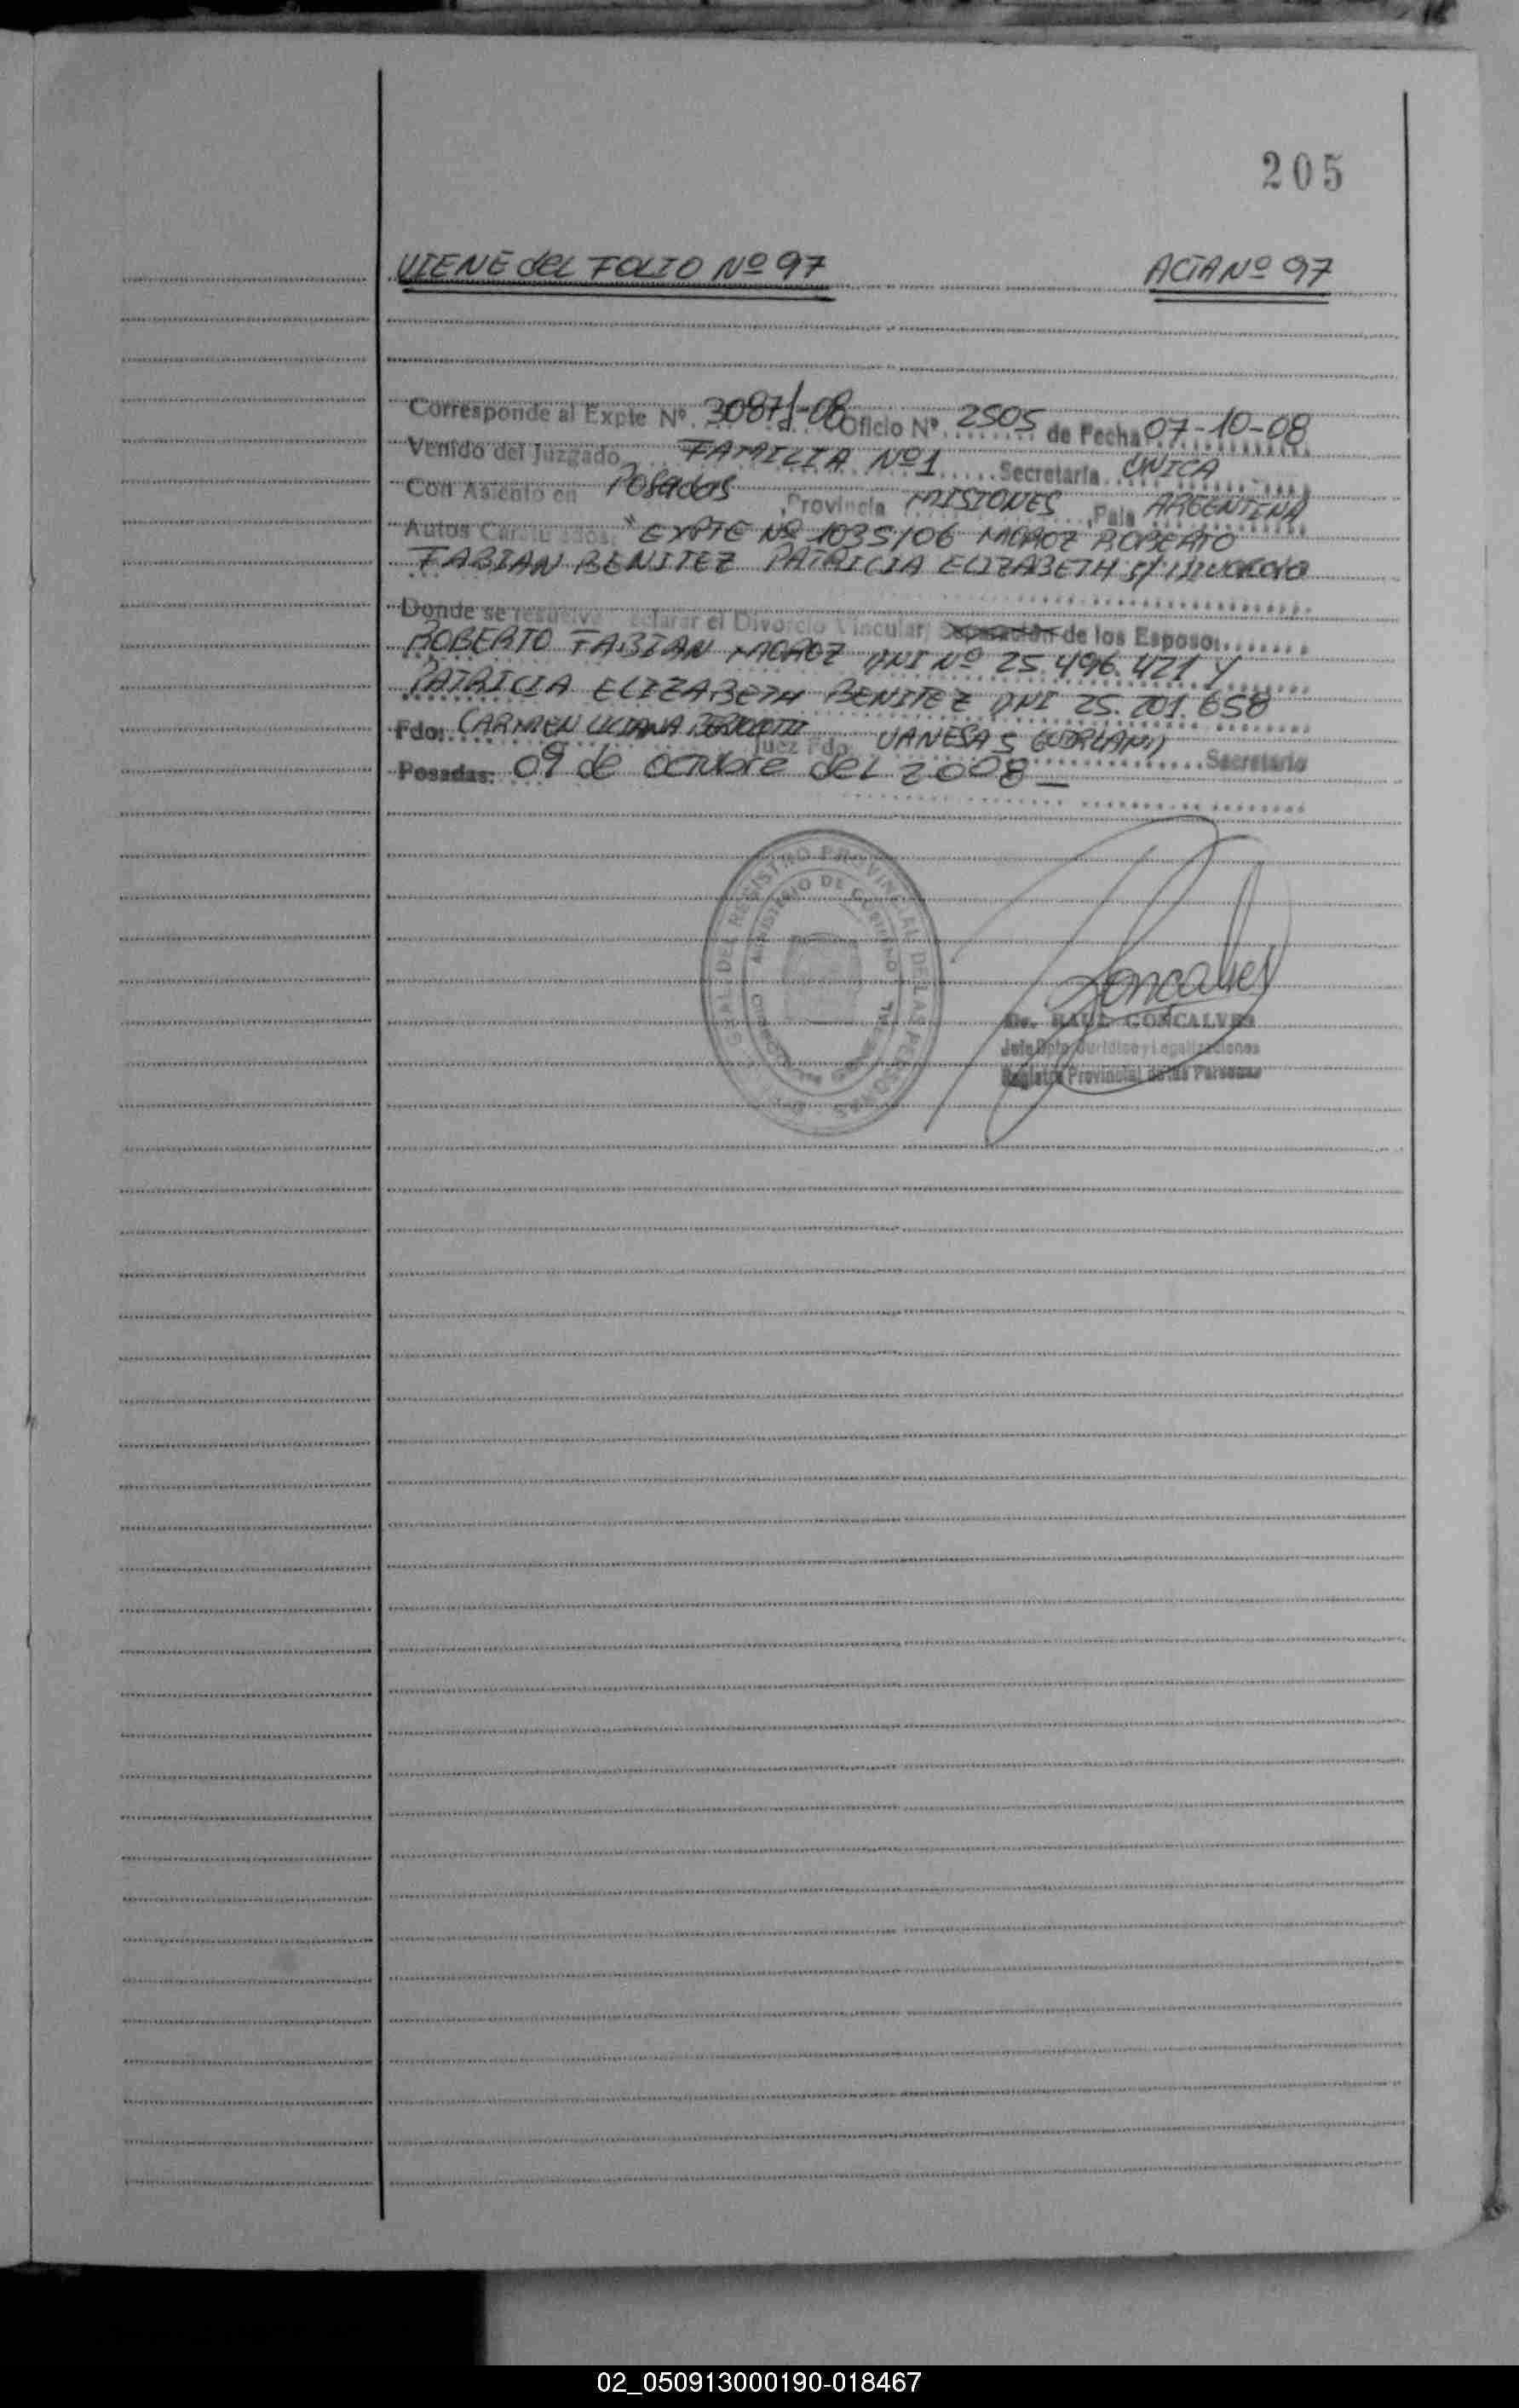 205
VIENE del FOLIO Nº 97 ACTA Nº 97
Corresponde al Expte Nº. 3087-1-08 Oficio Nº. 2505 de Fecha 07-10-08
Venido del Juzgado FAMILIA Nº 1 Secretaría UNICA
Con Asiento en Posadas, Provincia MISIONES, País ARGENTINA
Autos Caratulados: "EXPTE Nº 1035/06 ROBERTO
FABIAN BENITEZ PATRICIA ELIZABETH S/ DIVORCIO
Donde se resuelve declarar el Divorcio Vincular, Separación de los Esposos
ROBERTO FABIAN DNI Nº 25.496.421 Y
PATRICIA ELIZABETH BENITEZ DNI 25.201.658
Fdo: CARMEN LUCIANA Juez Fdo. VANESA S Secretario
Posadas: 09 de octubre del 2008
DEL REGISTRO PROVINCIAL DE LAS PERSONAS
MINISTERIO DE GOBIERNO
Goncalves
Dr. RAUL GONCALVES
Jefe Dpto. Jurídico y Legalizaciones
Registro Provincial de las Personas
02_050913000190-018467